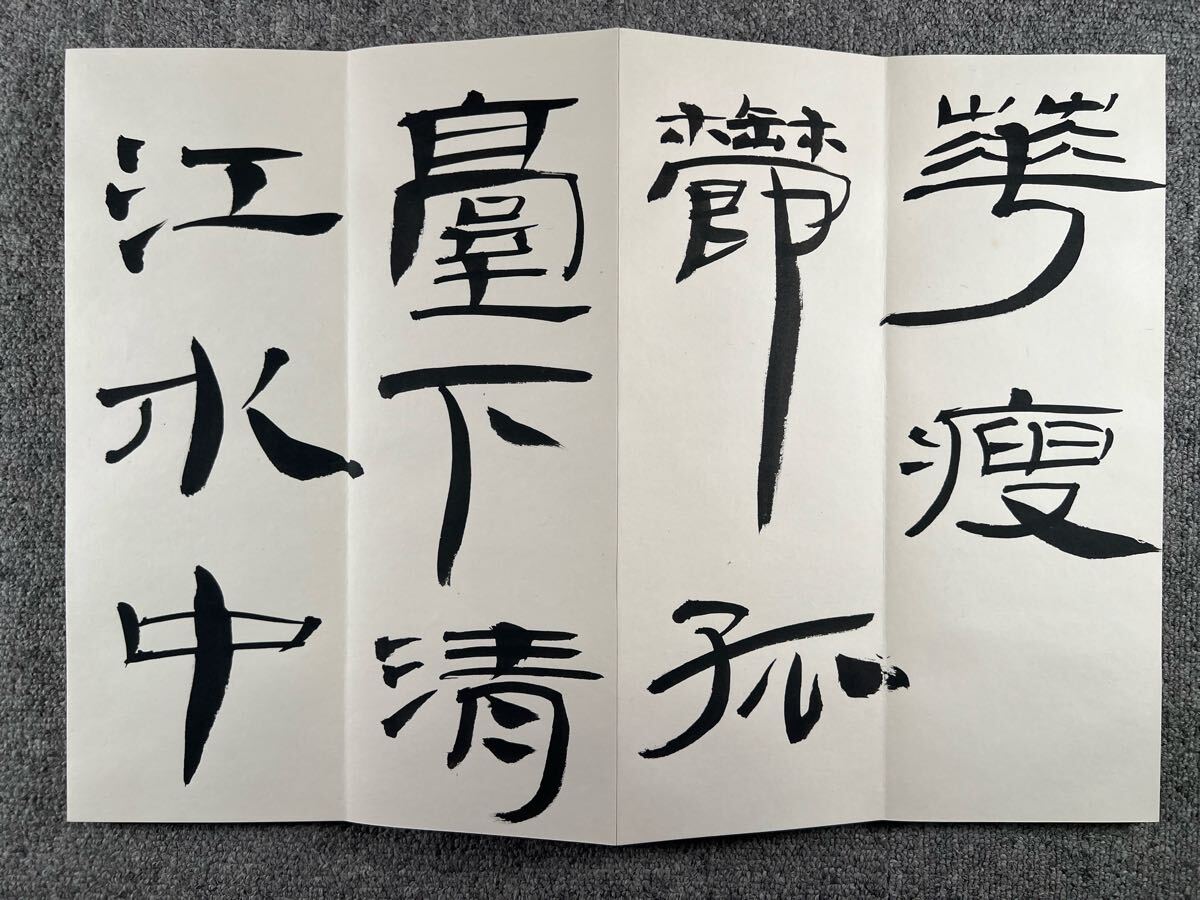 華瘦
欝孤
臺下清
江水中